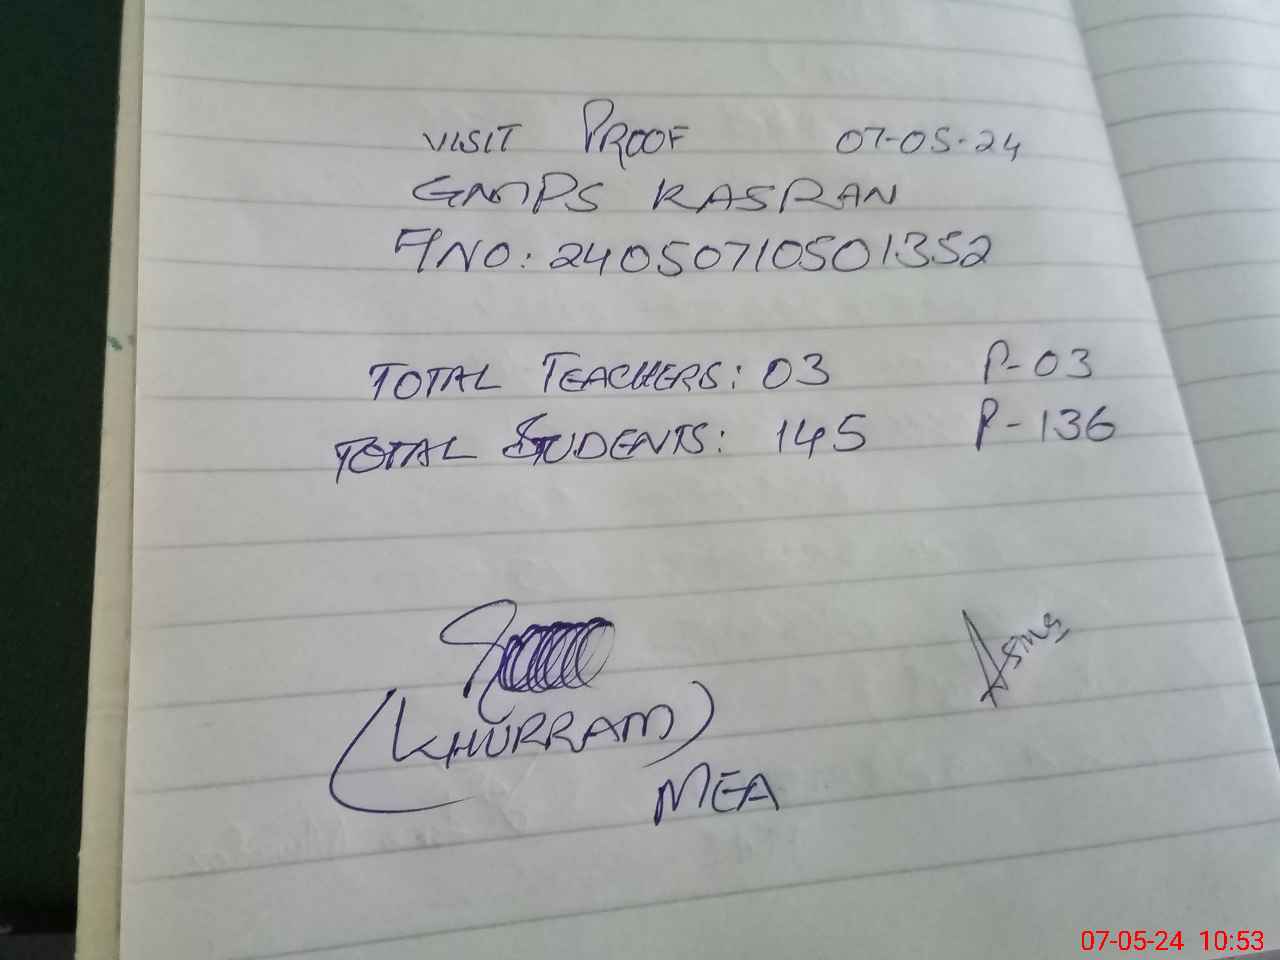 VISIT PROOF 07-05-24
GMPS KASRAN
A/NO: 24050710501352
TOTAL TEACHERS: 03 P-03
TOTAL STUDENTS: 145 P-136
Asma
(KHURRAM)
MEA
07-05-24 10:53